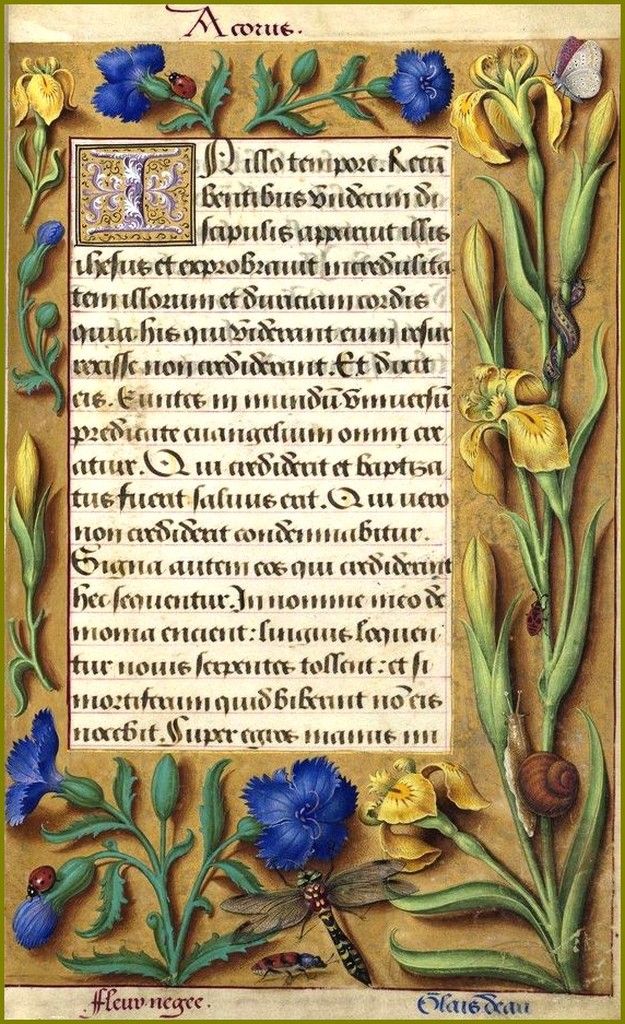 Acorus.
IN illo tempore. Recū
bentibus vndecim di
scipulis apparuit illis
ihesus et exprobrauit incredulita
tem illorum et duriciam cordis
quia his qui viderant eum resur
rexisse non crediderant. Et dixit
eis. Euntes in mundū vniuersū
predicate euangelium omni cre
ature. Qui crediderit et baptiza
tus fuerit saluus erit. Qui uero
non crediderit condemnabitur.
Signa autem eos qui crediderint
hec sequentur. In nomine meo de
monia eicient: linguis loquen
tur nouis serpentes tollent: et si
mortiferum quid biberint nō eis
nocebit. Super egros manus im
ffleur negee.
Glais deau